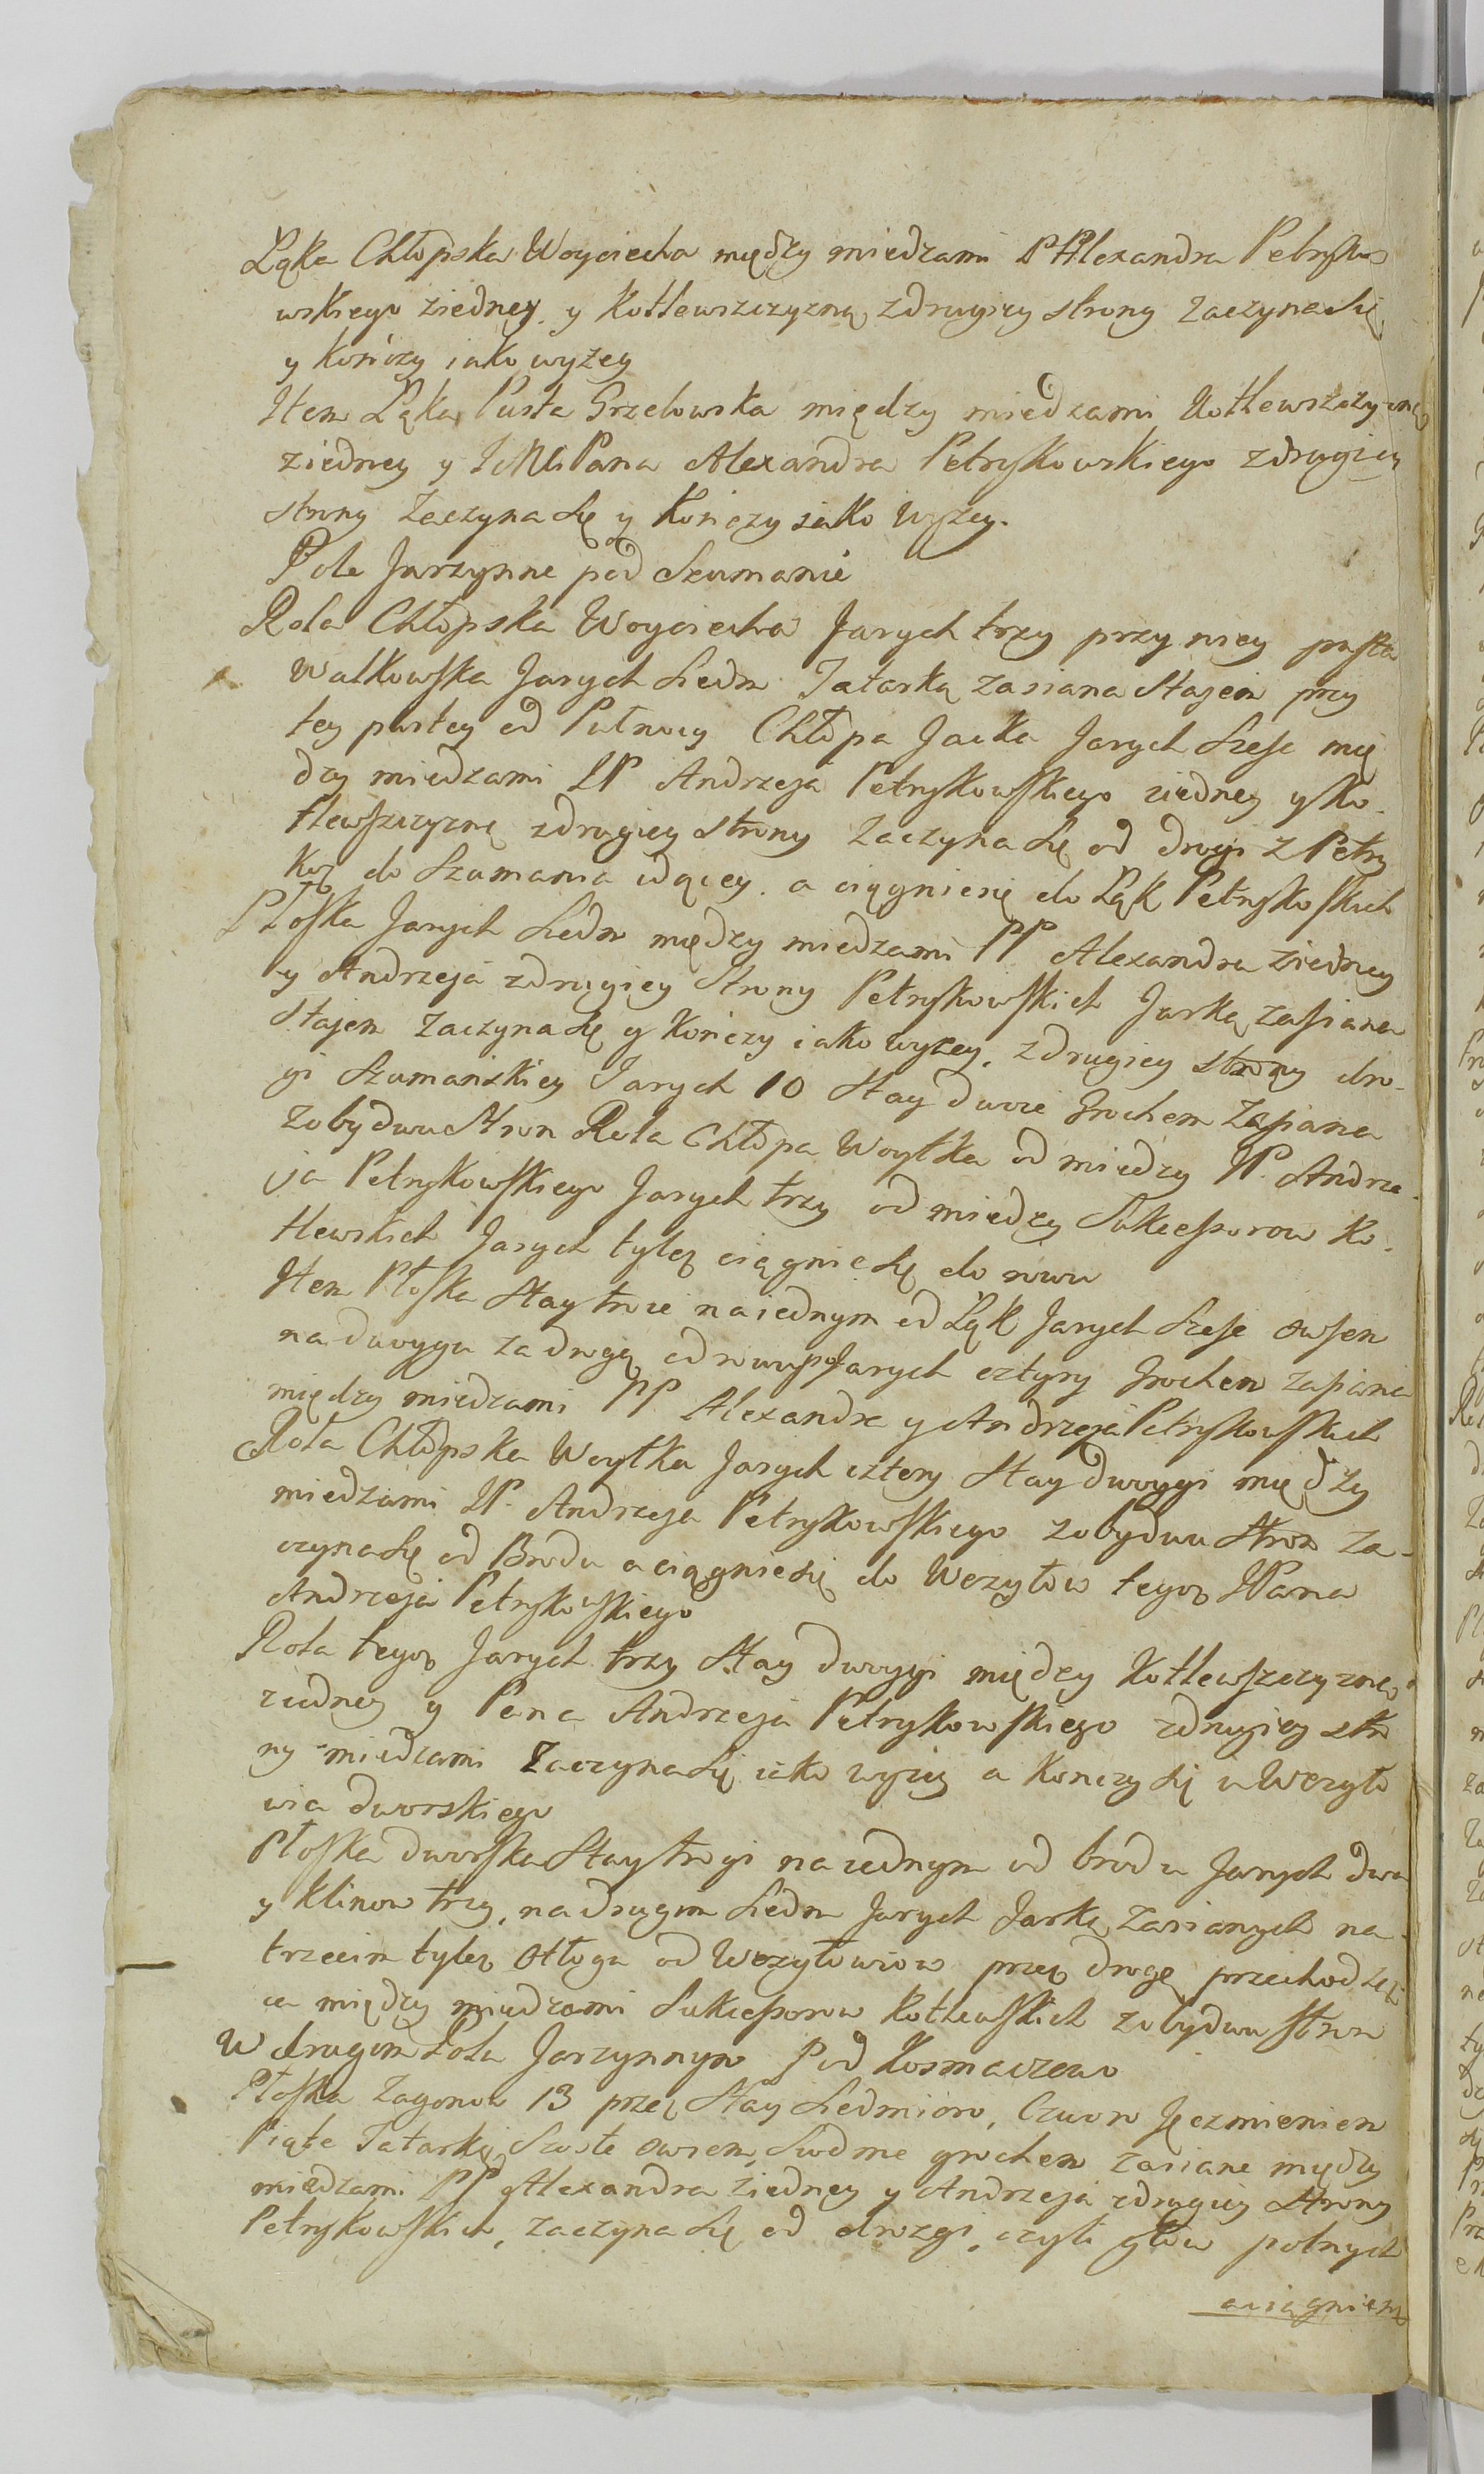 Łąka Chłopska Woyciecha między miedzami P Alexandra Petryko
wskiego ziedney y Kotłewszczyzną zdrugiey strony Zaczyna się
y kończy iako wyżey
Item Łąka Pusta Grzelowska między miedzami Kotłewszczyzną
ziedney y JMci Pana Alexandra Petrykowskiego zdrugiey
strony Zaczyna się y Kończy iako Wyżey.
Pole Jarzynne pod Szumanie
Rola Chłopska Woyciecha Jarych trzy przy niey pusta
Walkowska Jarych Siedm Tatarką zasiana Stajen przy
tey pustey od Pułnocy Chłopa Jacka Jarych Szesc mię
dzy miedzami JP Andrzeja Petrykowskiego ziedney y Ko-
tlewszczyzną zdrugiey strony Zaczyna się od drogi z Petry
koz do Szumania idącey. a ciągnie się do Łąk Petrykoskich
Płoska Jarych Siedm między miedzami PP Alexandra ziedney
y Andrzeja zdrugiey Strony Petrykowskich Jarką zasiana
Stajem Zaczyna się y Kończy iako wyżey. zdrugiey strony dro-
gi Szumańskiey Jarych 10 Stay dwoie Grochem Zasiana
Zobydwu Stron Rola Chłopa Woytka od miedzy JP. Andrze-
ja Petrykowskiego Jarych trzy od miedzy Sukcessorow Ko-
tlewskich Jarych tyleż ciągnie się do rowu
Item Płoska Stay troie na iednym od Łąk Jarych Szesc owsem
na dwoygu za drogą od rowu Jarych cztyry Grochem zasiana
między miedzami PP Alexandra y Andrzeja Petrykowskich
Rola Chłopska Woytka Jarych cztery Stay dwoygi między
miedzami JP. Andrzeja Petrykowskiego zobydwu Stron Za-
czyna się od Brodu a ciągnie się do Wezgłow tegoż JPana
Andrzeja Petrykowskiego
Rola tegoż Jarych trzy Stay dwoygi między Kotlewszczyzną
ziedney y Pana Andrzeja Petrykowskiego zdrugiey stro
ny miedzami Zaczyna się iako wyżey a Konczy się u Wezgło
wia dworskiego
Płoska dworska Stay trogi na iednym od brodu Jarych dwa
y Klinow trzy, na drugim Siedm Jarych Jarką Zasianych na
trzecim tyleż Odłogu od Wezgłowiow przez drogę przechodzą
ca między miedzami Sukcessorow Kotlewskich zobydwu stron
W drugim Polu Jarzynnym Pod Kosmaczewo
Płoska Zagonow 13 przez Stay Siedmioro, Czworo Jęczmieniem
Piąte Tatarką Szoste owsem, Siodme grochem zasiane między
miedzami PP Alexandra ziedney y Andrzeja zdrugiey Strony
Petrykowskich, zaczyna się od drozgi, czyli głow polnych
a ciągnie się